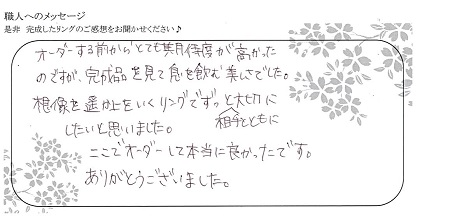 職人へのメッセージ
是非 完成したリングのご感想をお聞かせください♪
オーダーする前からとても期待度が高かった
のですが、完成品を見て息を飲む美しさでした。
想像を遥か上をいくリングでずっと大切に
したいと思いました。 相手とともに
ここでオーダーして本当に良かったです。
ありがとうございました。